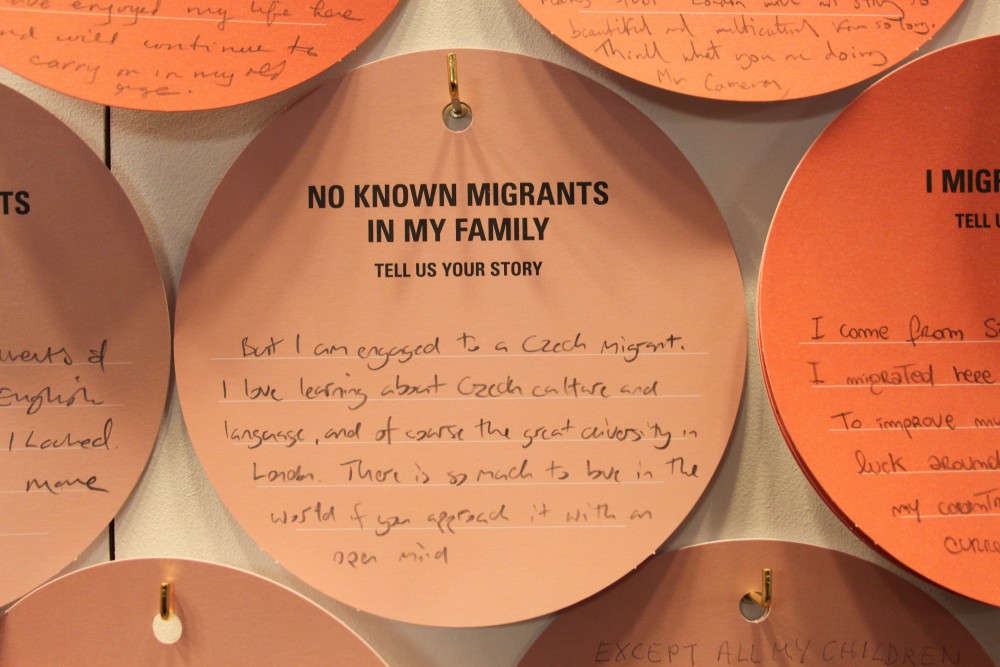 enjoyed my life here
and will continue to
carry on in my old
age.
beautiful and multicultural for so long.
Think what you are doing
Mr Cameron,
TS
English
I Lacked.
NO KNOWN MIGRANTS
IN MY FAMILY
TELL US YOUR STORY
But I am engaged to a Czech migrant.
I love learning about Czech culture and
language, and of course the great diversity in
London. There is so much to love in the
world if you approach it with an
open mind
I MIGR
TELL U
I come from S
I migrated here
To improve my
luck around
my countr
curre
EXCEPT ALL MY CHILDREN